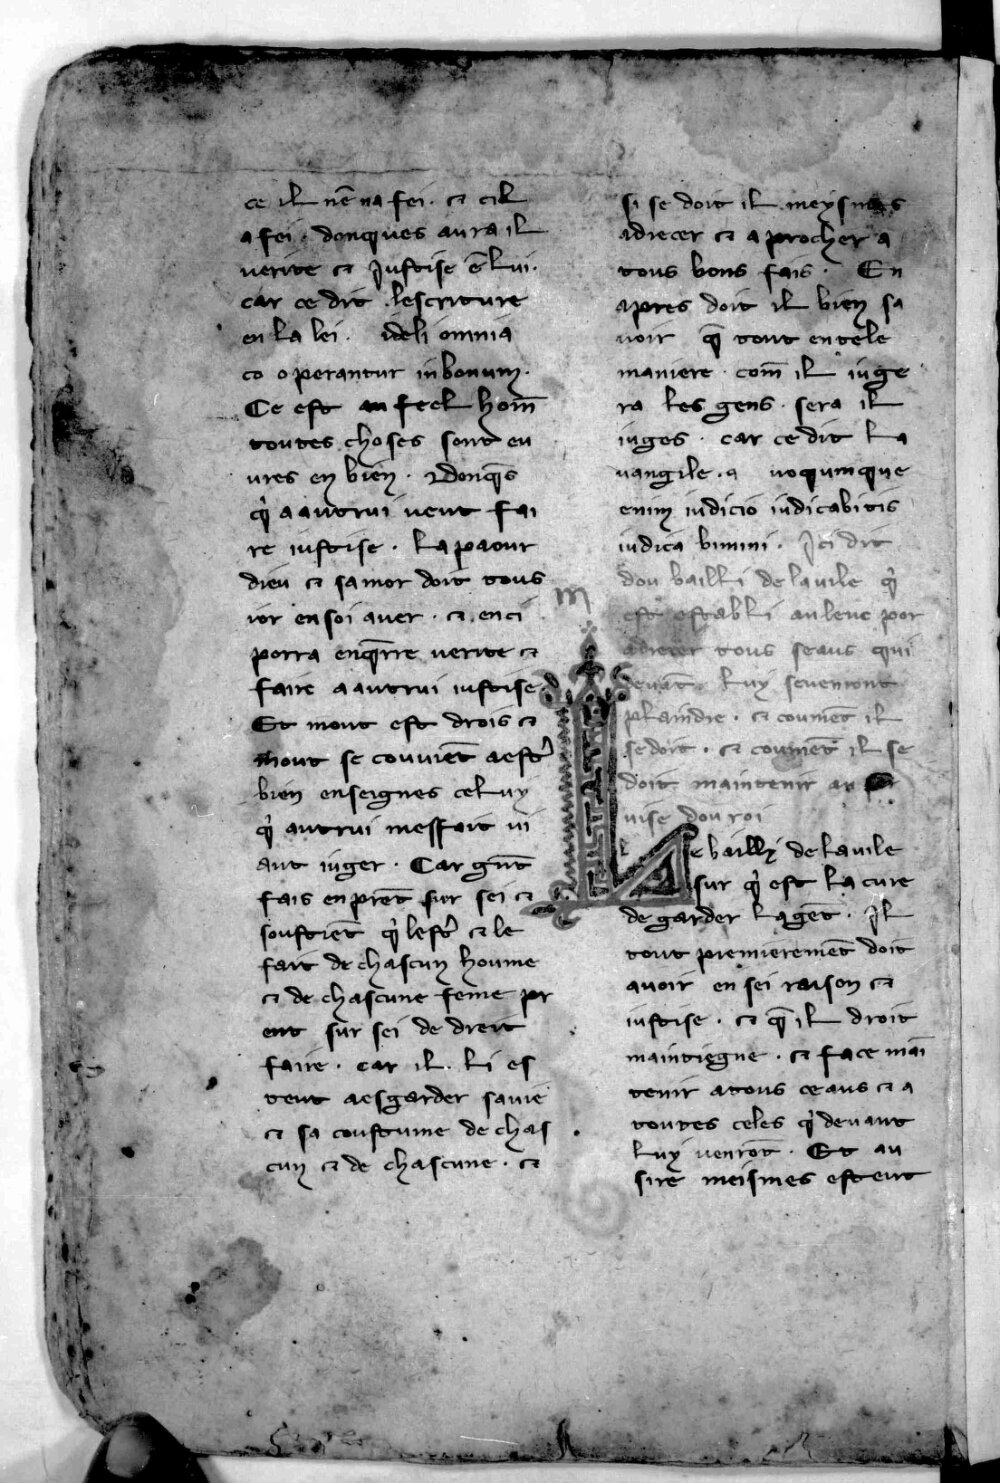 ce il nē na fei · ⁊ cil
a fei · donques aura il
verite ⁊ Justise ē lui ·
car ce dit lescriture
en la lei · fideli omnia
co operantur in bonum ·
Ce est au feel hom̄
toutes choses sont eu
ures en bien · Donq̄s
q̇ a autrui veut fai
re iustise · la paour
dieu ⁊ samor doit tous
iors en soi aver · ⁊ enci
porra enq̄rre verite ⁊
faire a autrui iustise ·
Et mout est drois ⁊
mout se couuiēt aestr̾
bien enseignes celuy
q̇ autrui meffait ui
aut iuger · Car gūt
fais en prēt sur sei ⁊
soustiēt q̇ lestr̾ ⁊ le
fait de chascun houme
⁊ de chascune feme pr
ent sur sei de dreit
faire · car il li es
teut aesgarder sa vie
⁊ sa coustume de chas
cun ⁊ de chascune · ⁊
si se doit il meysmes
adrecer ⁊ aprocher a
tous bons fais · En
apres doit il bien sa
uoir q̄ tout en tele
maniere com̄ il iuge
ra les gens · sera il
iuges · car ce dit la
vangile · a uo quinque
enim iudicio iudicabitis
iudica bimini · Ici dit
dou bailli de la uile q̇
est establi au leuc por
adrecer tous seaus qui
deuāt luy seuenront
plaindre · ⁊ coumēt il
se doit · ⁊ coumēt il se
doit maintenir au
uise dou roi
Le bailli de la uile
sur q̇ est la cure
de garder la gēt · Il
tout premieremēt doit
avoir en sei raison ⁊
iustise · ⁊ q̄ il droit
maintiegne · ⁊ face mai
tenir a tous ceaus ⁊ a
toutes celes q̇ devant
luy venrōt · Et au
sire meismes esteut